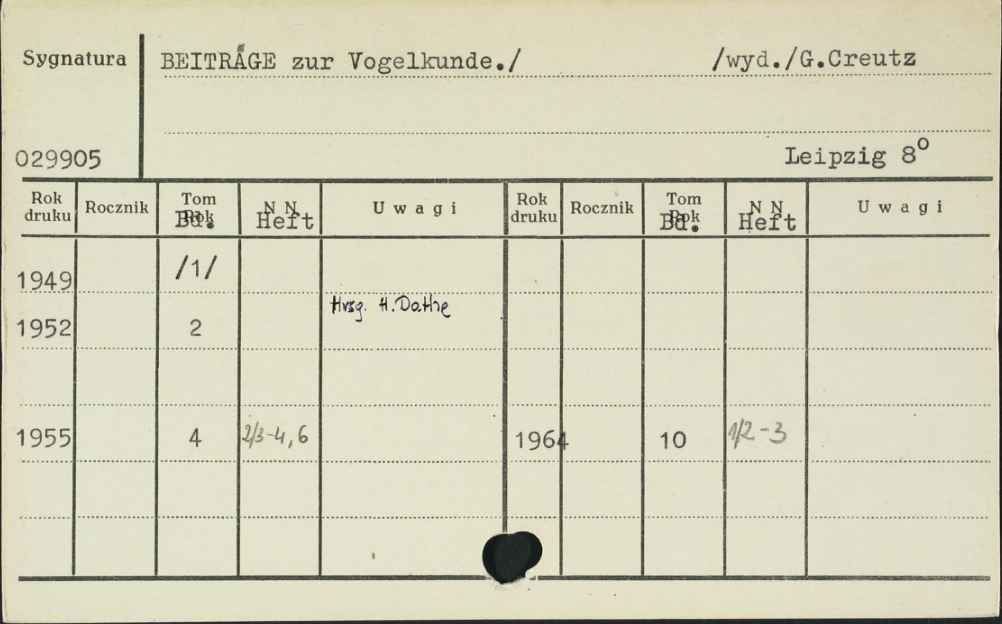 Sygnatura BEITRÄGE zur Vogelkunde./ /wyd./G.Creutz
029905 Leipzig 8°
Rok druku Rocznik Tom Rok Bd. N N Heft Uwagi Rok druku Rocznik Tom Rok Bd. N N Heft Uwagi
1949 /1/
Hrsg. H. Dathe
1952 2
1955 4 2/3-4, 6 1964 10 1/2-3